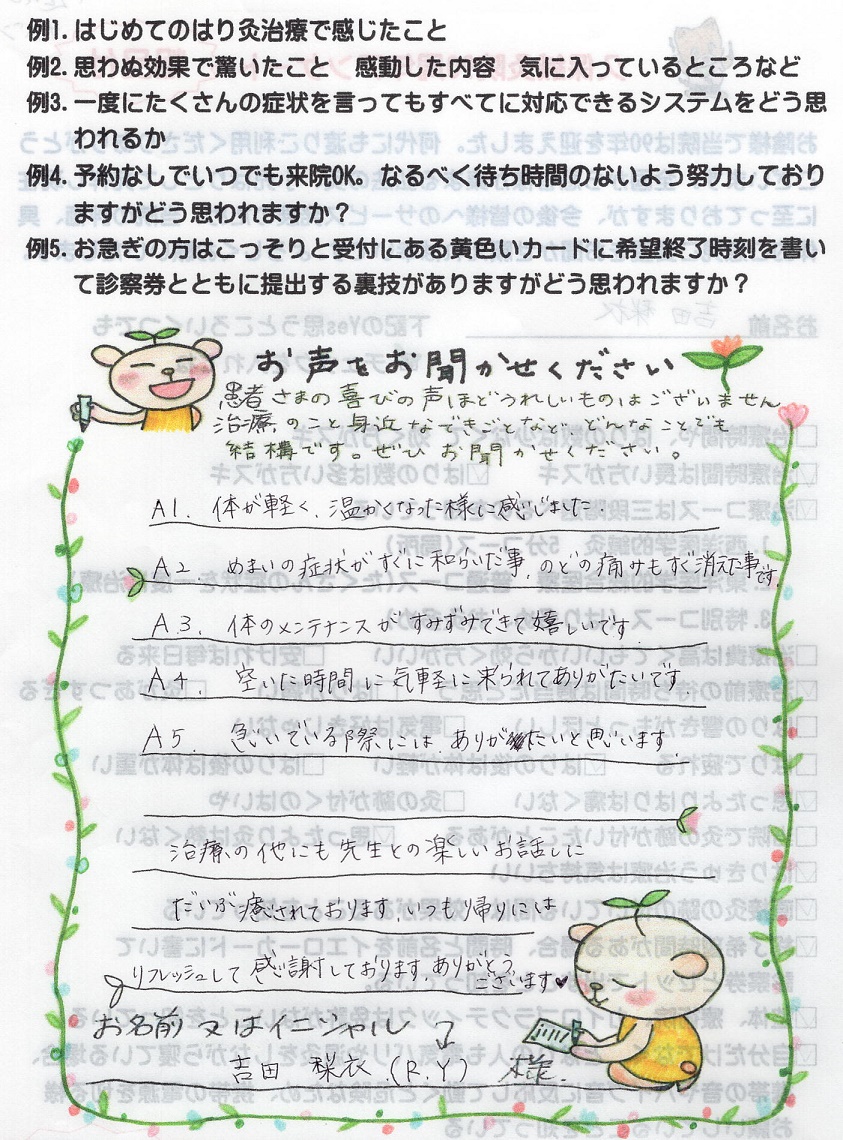 例1. はじめてのはり灸治療で感じたこと
例2. 思わぬ効果で驚いたこと　感動した内容　気に入っているところなど
例3. 一度にたくさんの症状を言ってもすべてに対応できるシステムをどう思
われるか
例4. 予約なしでいつでも来院OK。なるべく待ち時間のないよう努力しており
ますがどう思われますか？
例5. お急ぎの方はこっそりと受付にある黄色いカードに希望終了時刻を書い
て診察券とともに提出する裏技がありますがどう思われますか？
お声をお聞かせください
患者さまの喜びの声ほどうれしいものはございません
治療のこと身近なできごとなど、どんなことでも
結構です。ぜひお聞かせください。
A1. 体が軽く、温かくなった様に感じました.
A2. めまいの症状がすぐに和らいだ事、のどの痛みもすぐ消えた事です.
A3. 体のメンテナンスがすみずみできて嬉しいです.
A4. 空いた時間に気軽に来られてありがたいです.
A5. 急いでいる際には、ありがたいと思います.
治療の他にも先生との楽しいお話しに
だいぶ癒されております.いつも帰りには
リフレッシュして感謝しております.ありがとう
ございます♥
お名前又はイニシャル
吉田　梨衣 (R.Y)　様.